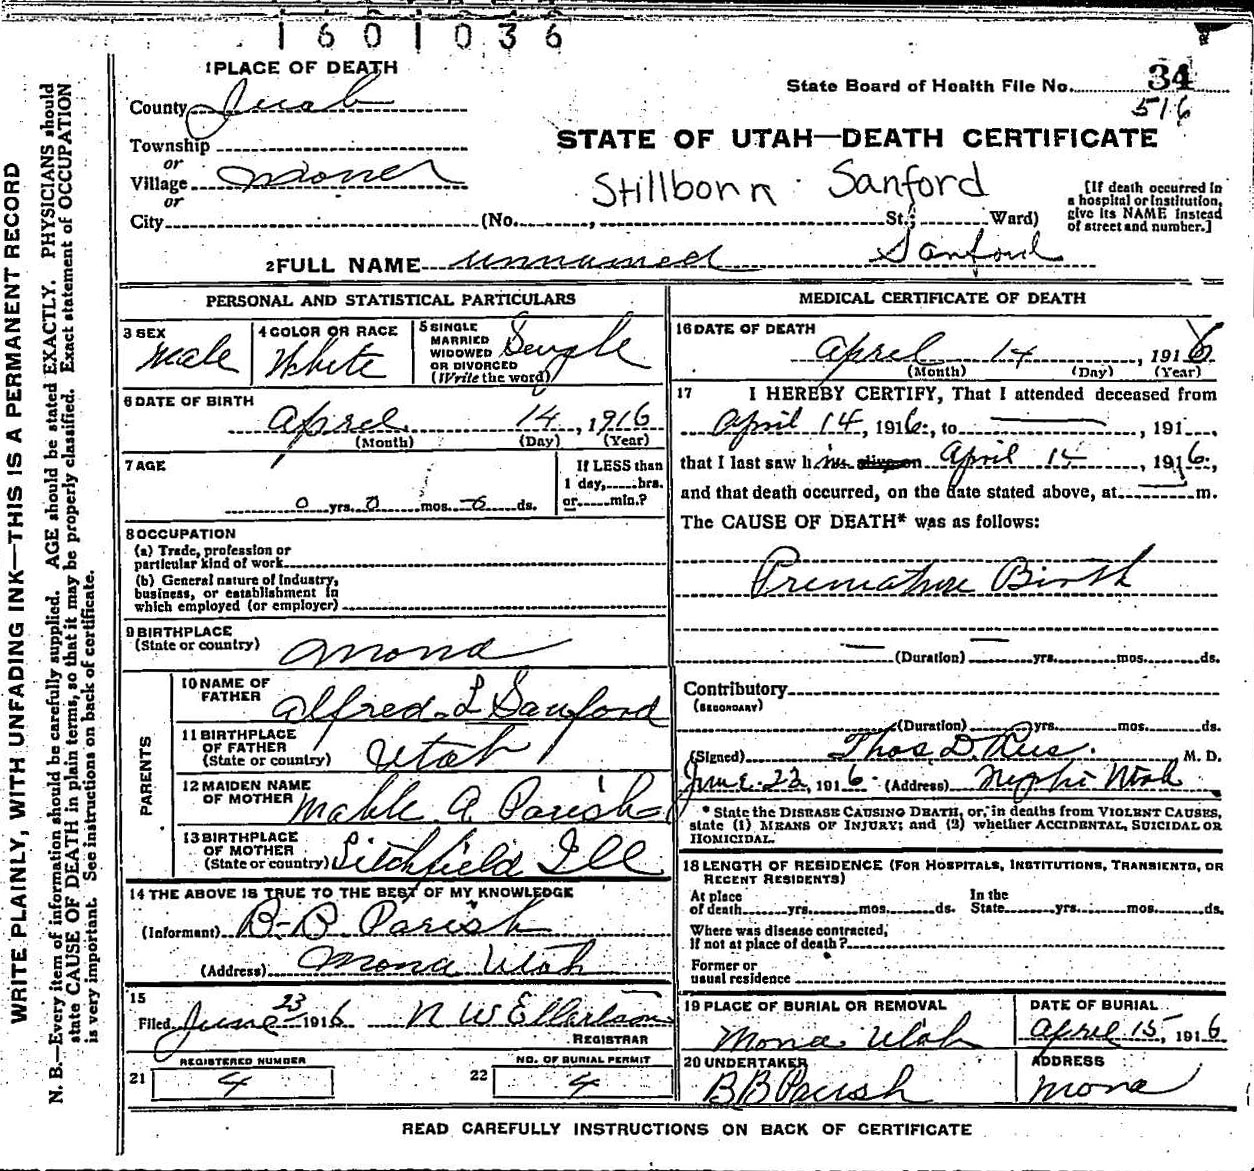 1601036
1 PLACE OF DEATH
State Board of Health File No. 34
516
County Juab
STATE OF UTAH—DEATH CERTIFICATE
Township
or
Village Mona
or
Stillborn Sanford
[If death occurred in
a hospital or institution,
give its NAME instead
of street and number.]
City (No. , St.; Ward)
2 FULL NAME unnamed Sanford
PERSONAL AND STATISTICAL PARTICULARS
3 SEX
Male
4 COLOR OR RACE
White
5 SINGLE
MARRIED
WIDOWED
OR DIVORCED
(Write the word)
Single
6 DATE OF BIRTH
April 14, 1916
(Month) (Day) (Year)
7 AGE
0 yrs. 0 mos. 0 ds.
If LESS than
1 day, hrs.
or min.?
8 OCCUPATION
(a) Trade, profession or
particular kind of work
(b) General nature of Industry,
business, or establishment in
which employed (or employer)
9 BIRTHPLACE
(State or country) Mona
PARENTS
10 NAME OF
FATHER Alfred L Sanford
11 BIRTHPLACE
OF FATHER
(State or country) Utah
12 MAIDEN NAME
OF MOTHER Mable A Parish
13 BIRTHPLACE
OF MOTHER
(State or country) Litchfield Ill
14 THE ABOVE IS TRUE TO THE BEST OF MY KNOWLEDGE
(Informant) B-B Parish
(Address) Mona Utah
15
Filed June 23 1916 N W Ellertson
REGISTRAR
REGISTERED NUMBER
21 4
NO. OF BURIAL PERMIT
22 4
MEDICAL CERTIFICATE OF DEATH
16 DATE OF DEATH
April 14, 1916
(Month) (Day) (Year)
17 I HEREBY CERTIFY, That I attended deceased from
April 14, 1916, to , 191 ,
that I last saw him alive on April 14, 1916,
and that death occurred, on the date stated above, at m.
The CAUSE OF DEATH* was as follows:
Premature Birth
(Duration) yrs. mos. ds.
Contributory
(SECONDARY)
(Duration) yrs. mos. ds.
(Signed) Thos. D. Rees. M. D.
June 22, 1916. (Address) Nephi Utah
* State the DISEASE CAUSING DEATH, or, in deaths from VIOLENT CAUSES,
state (1) MEANS OF INJURY; and (2) whether ACCIDENTAL, SUICIDAL OR
HOMICIDAL.
18 LENGTH OF RESIDENCE (FOR HOSPITALS, INSTITUTIONS, TRANSIENTS, OR
RECENT RESIDENTS)
At place
of death yrs. mos. ds.
In the
State yrs. mos. ds.
Where was disease contracted,
if not at place of death?
Former or
usual residence
19 PLACE OF BURIAL OR REMOVAL
Mona Utah
DATE OF BURIAL
April 15, 1916
20 UNDERTAKER
B B Parish
ADDRESS
Mona
READ CAREFULLY INSTRUCTIONS ON BACK OF CERTIFICATE
WRITE PLAINLY, WITH UNFADING INK—THIS IS A PERMANENT RECORD
N. B.—Every item of information should be carefully supplied. AGE should be stated EXACTLY. PHYSICIANS should
state CAUSE OF DEATH in plain terms, so that it may be properly classified. Exact statement of OCCUPATION
is very important. See instructions on back of certificate.